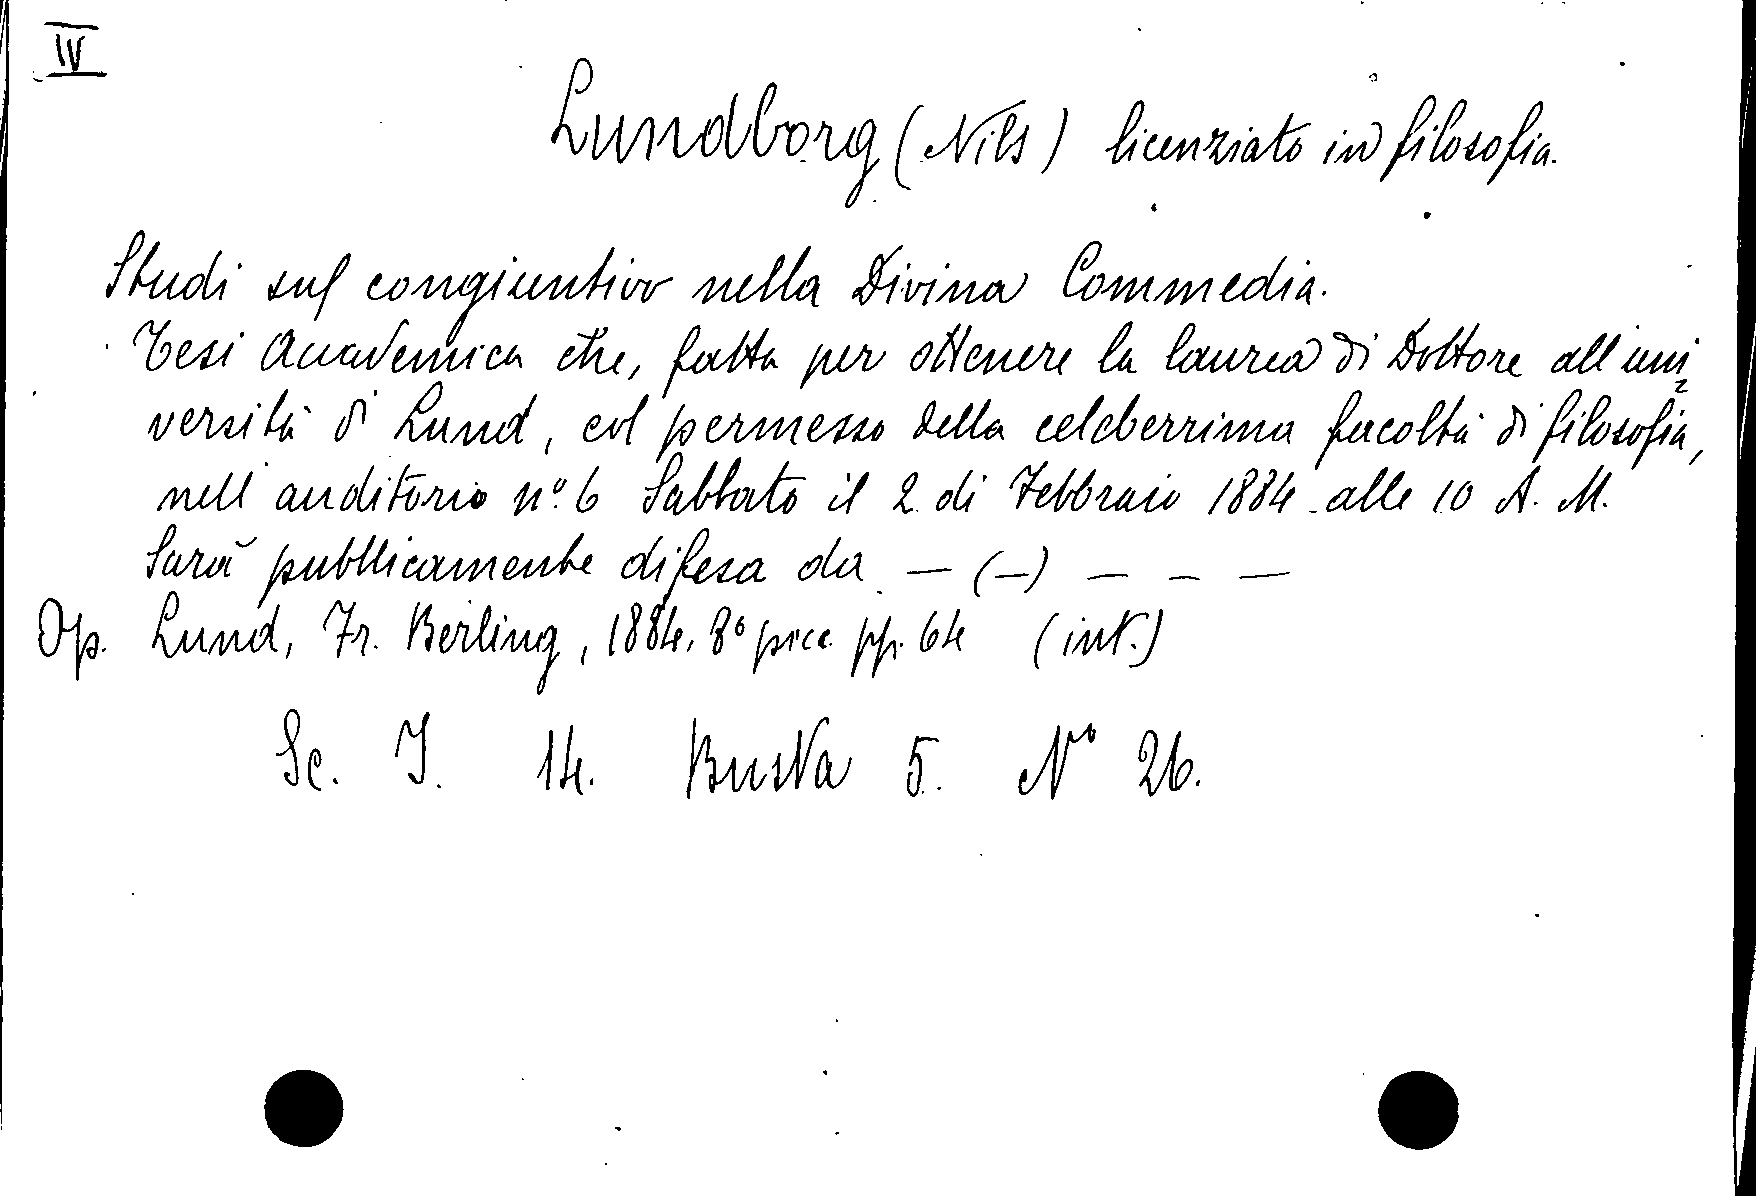 IV
Lundborg (Nils) licenziato in filosofia.
Studi sul congiuntivo nella Divina Commedia.
Tesi Academica che, fatta per ottenere la laurea di Dottore all'uni
versità di Lund, col permesso della celeberrima facoltà di filosofia,
nell auditorio n.º 6 Sabbato il 2 di Febbraio 1884 alle 10 A. M.
Sarà pubblicamente difesa da — (—) — — —
Op. Lund, Fr. Berling, 1884. 8º picc. pp. 64 (int.)
Sc. I. 14. Busta 5. Nº 26.